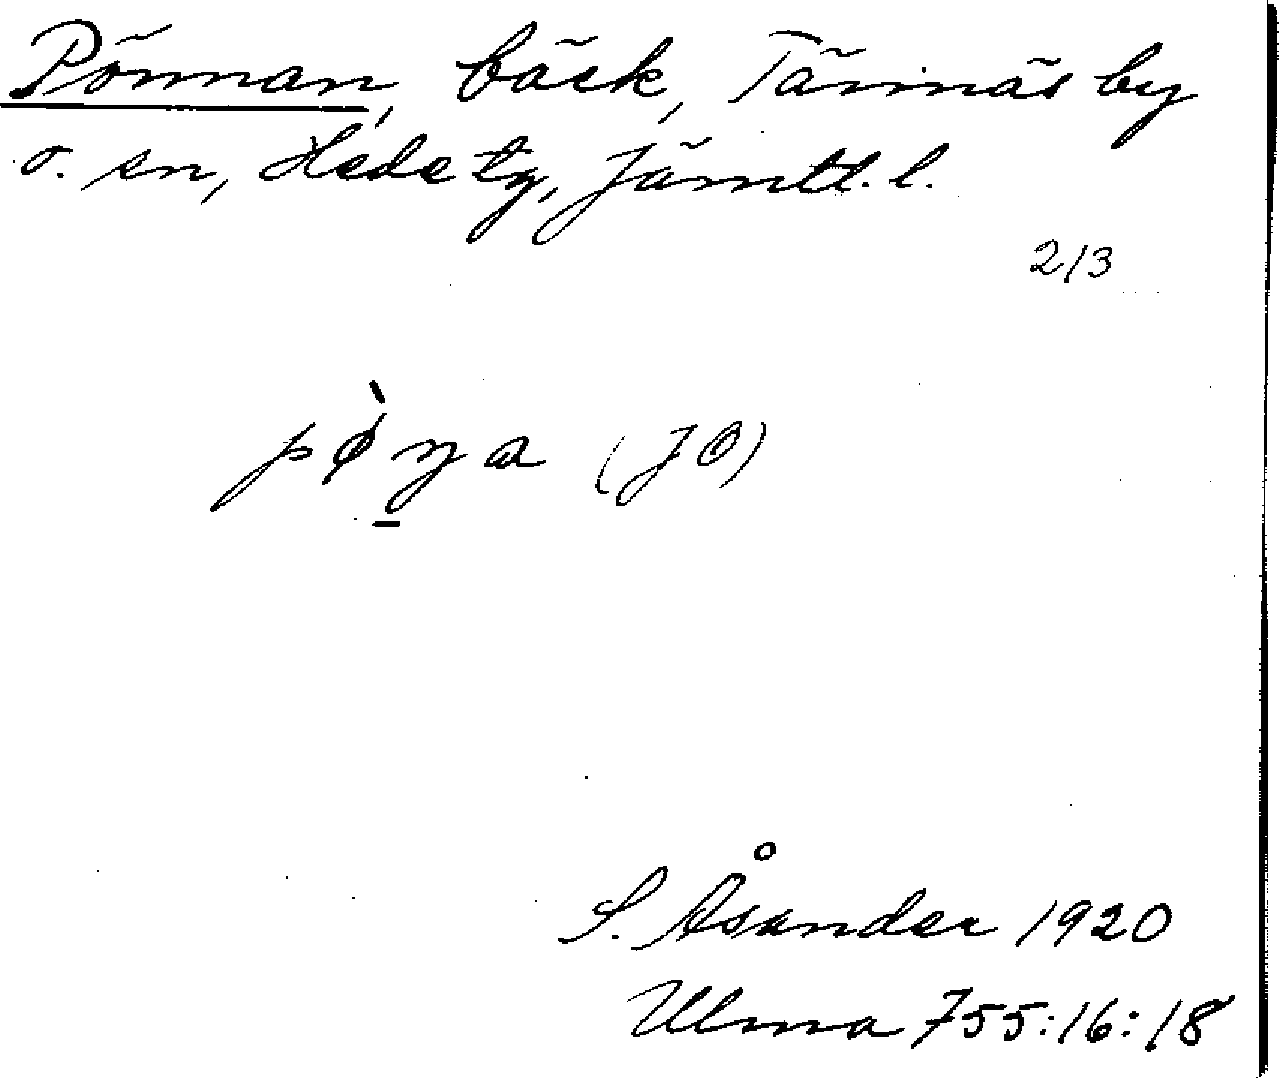 Pönnan, bäck, Tännäs by
o. sn, Hede tg, Jämtl. l.
2/3
pø̀n̠a (JO)
S. Åsander 1920
Ulma 755:16:18